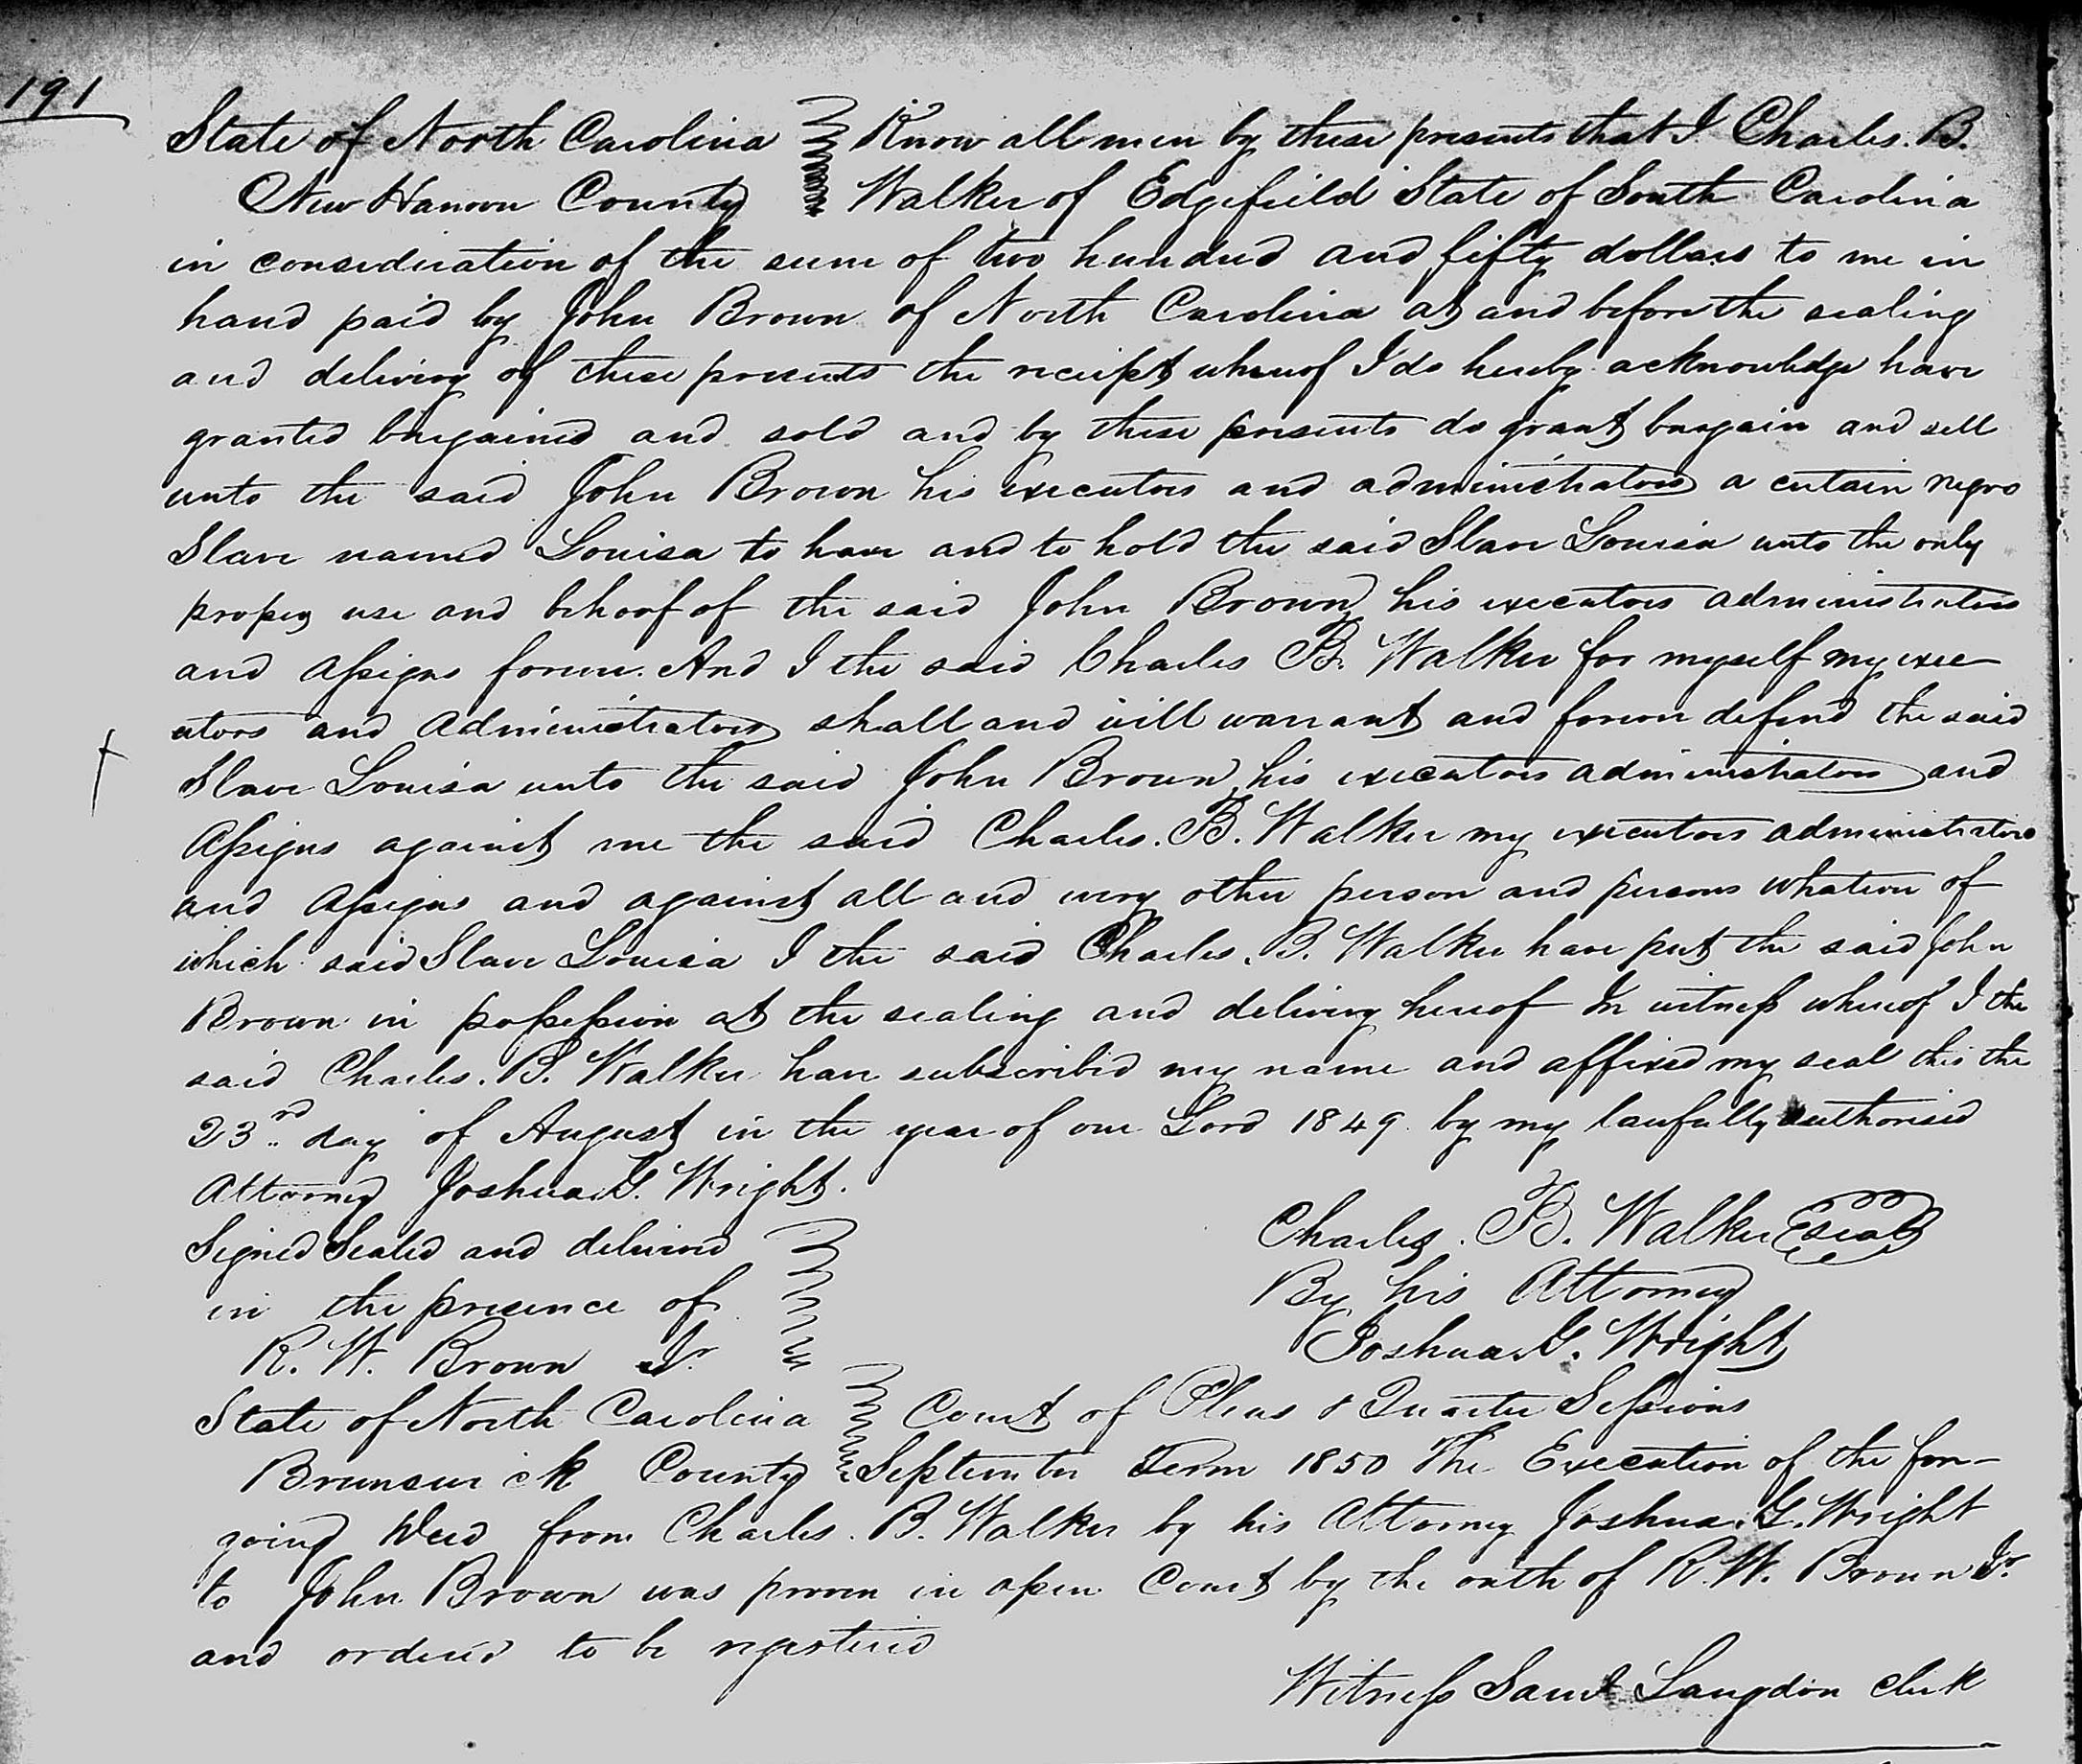 191
State of North Carolina Know all men by these presents that I Charles. B.
New Hanover County Walker of Edgefield State of South Carolina
in consideration of the sum of two hundred and fifty dollars to me in
hand paid by John Brown of North Carolina at and before the sealing
and delivery of these presents the receipt whereof I do hereby acknowledge have
granted bargained and sold and by these presents do grant bargain and sell
unto the said John Brown his executors and administrators a certain negro
Slave named Louisa to have and to hold the said Slave Louisa unto the only
proper use and behoof of the said John Brown, his executors administrators
and Assigns forever. And I the said Charles B. Walker for myself my exec-
utors and Administrators shall and will warrant and forever defend the said
Slave Louisa unto the said John Brown, his executors administrators and
Assigns against me the said Charles. B. Walker my executors administrators
and Assigns and against all and every other person and persons whatever of
which said Slave Louisa I the said Charles. B. Walker have put the said John
Brown in possession at the sealing and delivery hereof In witness whereof I the
said Charles. B. Walker have subscribed my name and affixed my seal this the
23rd day of August in the year of our Lord 1849 by my lawfully authorised
Attorney Joshua G. Wright.
Signed Sealed and delivered Charles. B. Walker seal
in the presence of By his Attorney
R. W. Brown Jr Joshua G. Wright
State of North Carolina Court of Pleas & Quarter Sessions
Brunswick County September Term 1850 The Execution of the fore-
going Deed from Charles. B. Walker by his Attorney Joshua G. Wright
to John Brown was proven in open Court by the oath of R. W. Brown Jr.
and ordered to be registered
Witness Saml Langdon Clerk